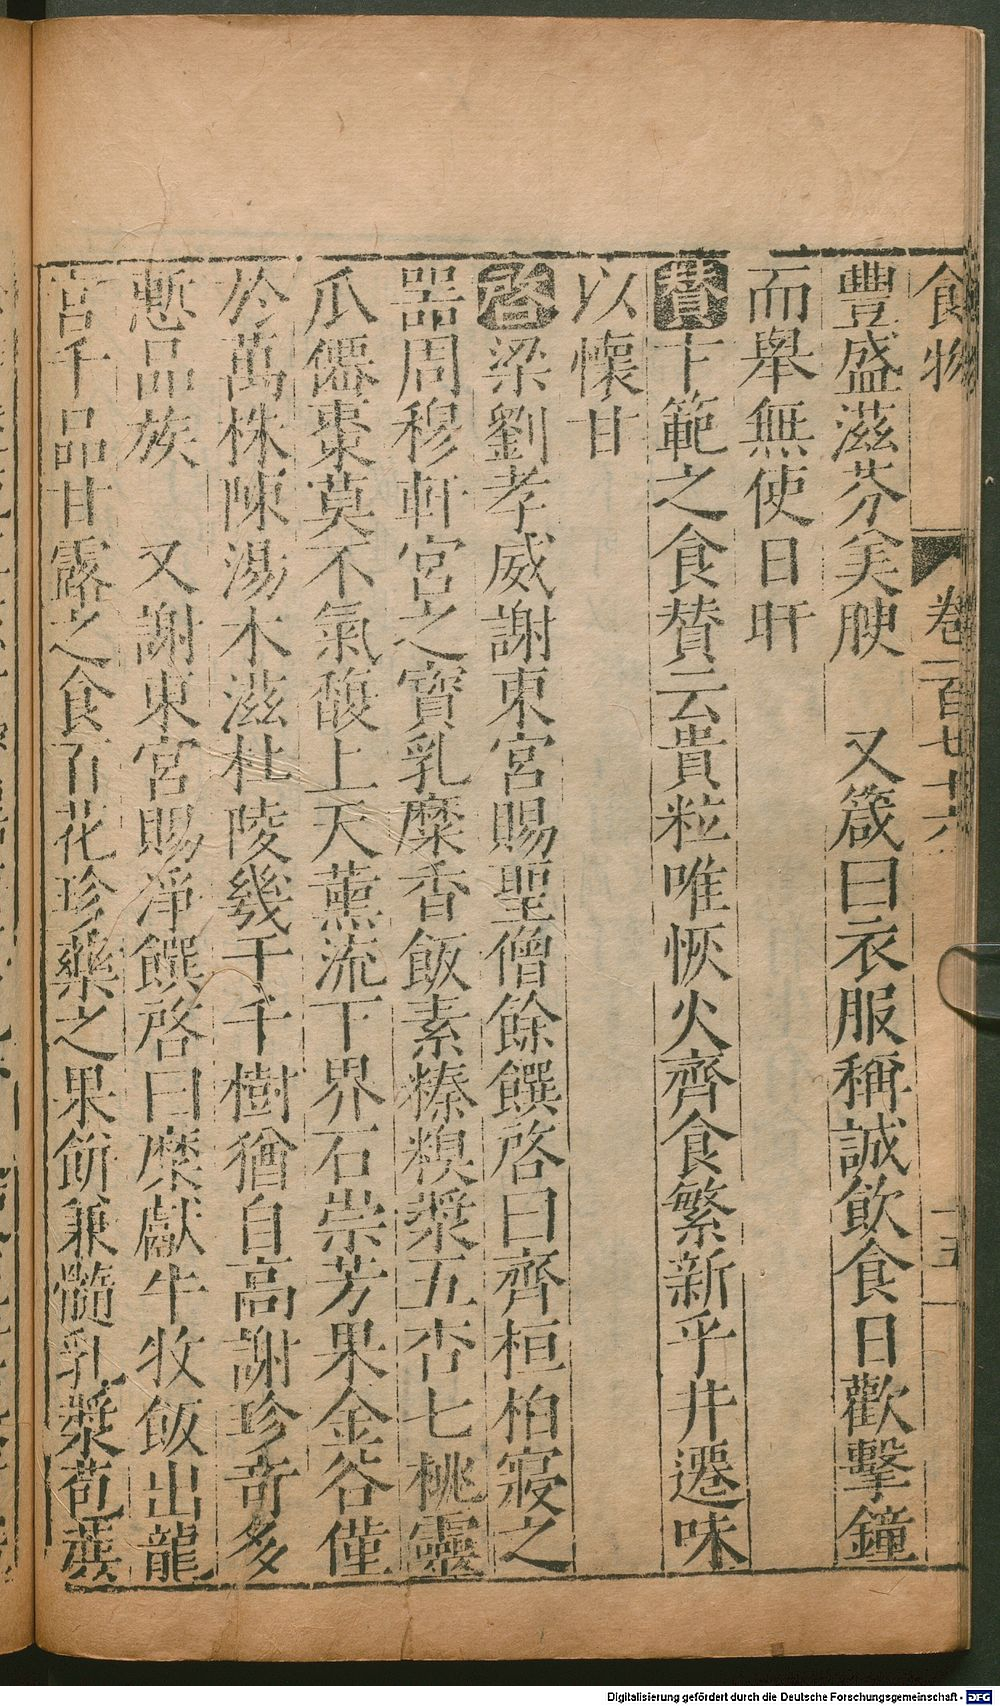 食物 卷一百七十六 十五
豐盛滋芬美腴 又箴曰衣服稱誠飲食日歡擊鐘
而舉無使日旰
贊卞範之食贊云貴粒唯恢火齊食繁新乎井遷味
以懷甘
啓梁劉孝威謝東宮賜聖僧餘饌啓曰齊桓柏寢之
器周穆軒宮之寶乳糜香飯素𥻦糗漿五杏七桃靈
瓜僊棗莫不氣馥上天薰流下界石崇芳果金谷僅
於萬株陳湯木滋杜陵幾千千樹猶自高謝珍奇多
慙品族 又謝東宮賜淨饌啓曰糜獻牛牧飯出龍
宮千品甘露之食百花珍藥之果餅兼髓乳漿苞蔗
Digitalisierung gefördert durch die Deutsche Forschungsgemeinschaft - DFG